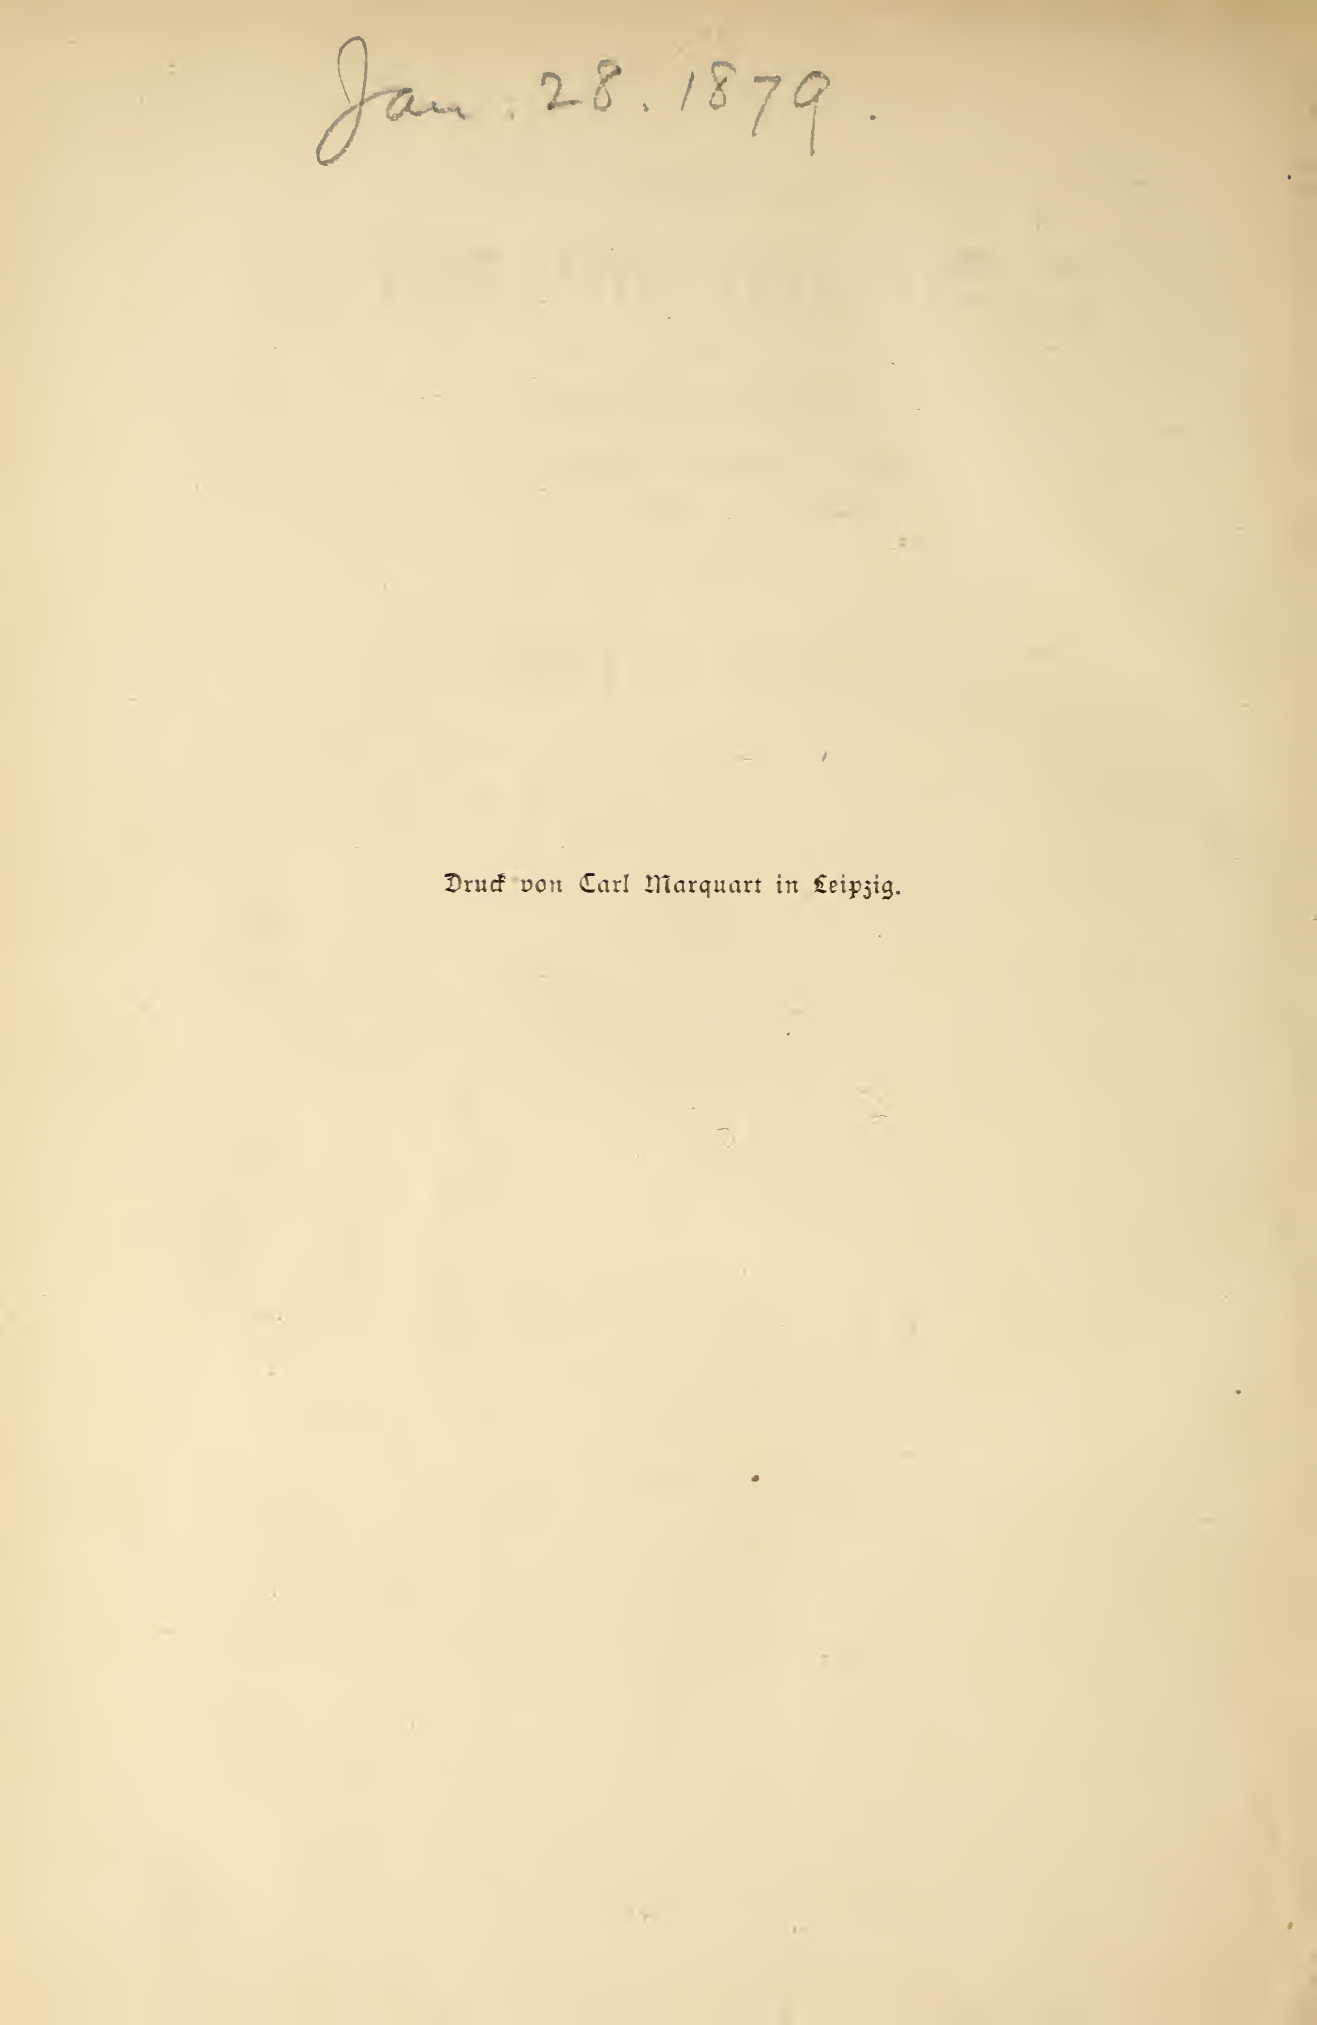 Jan. 28. 1879.
Druck von Carl Marquart in Leipzig.